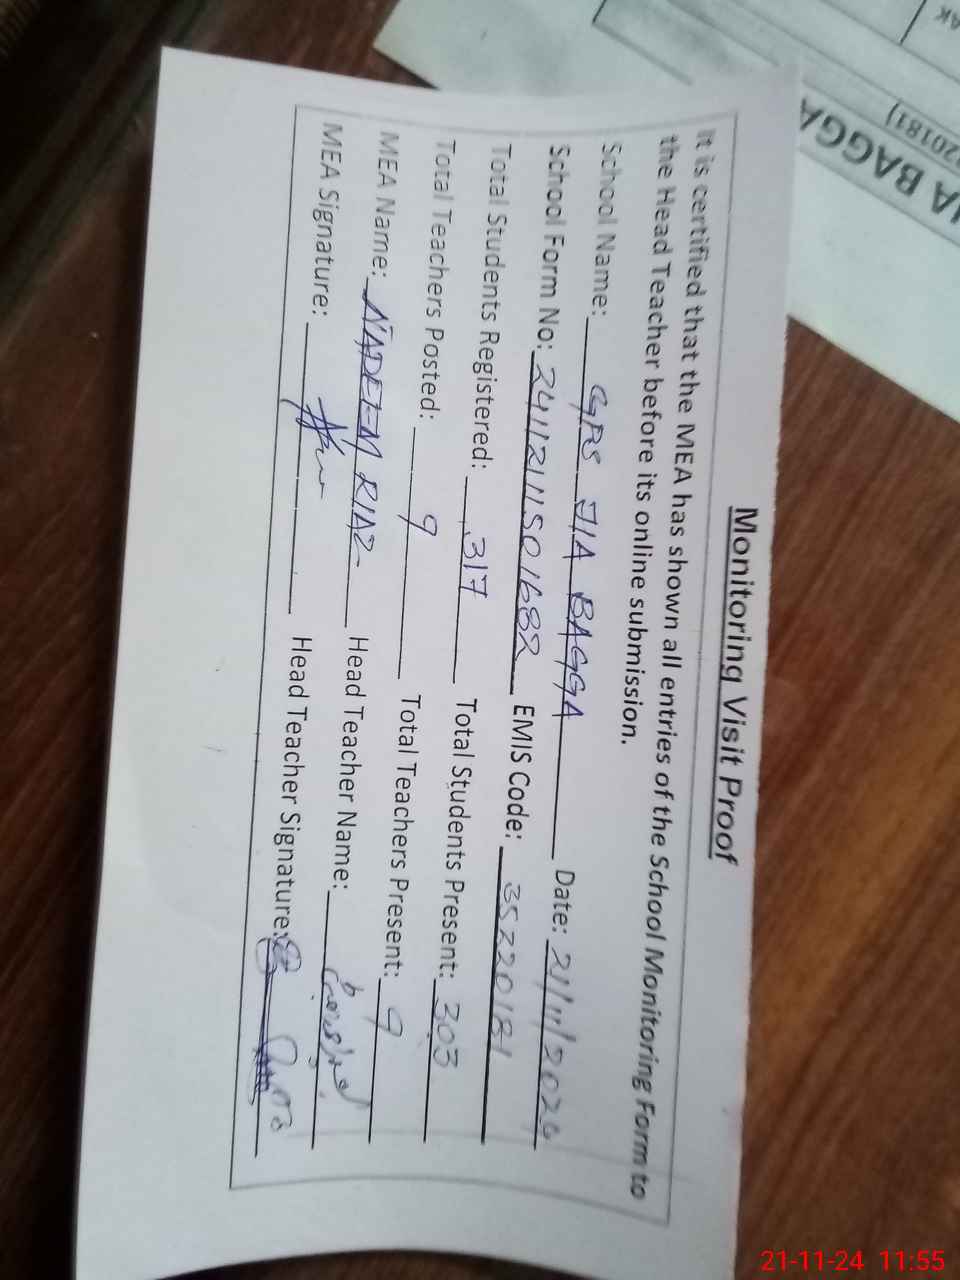 Monitoring Visit Proof
It is certified that the MEA has shown all entries of the School Monitoring Form to
the Head Teacher before its online submission.
School Name: GPS JIA BAGGA Date: 21/11/2024
School Form No: 24112111501682 EMIS Code: 35220181
Total Students Registered: 317 Total Students Present: 303
Total Teachers Posted: 9 Total Teachers Present: 9
MEA Name: NADEEM RIAZ Head Teacher Name:
MEA Signature: Head Teacher Signature:
IA BAGGA
20181)
AK
21-11-24 11:55